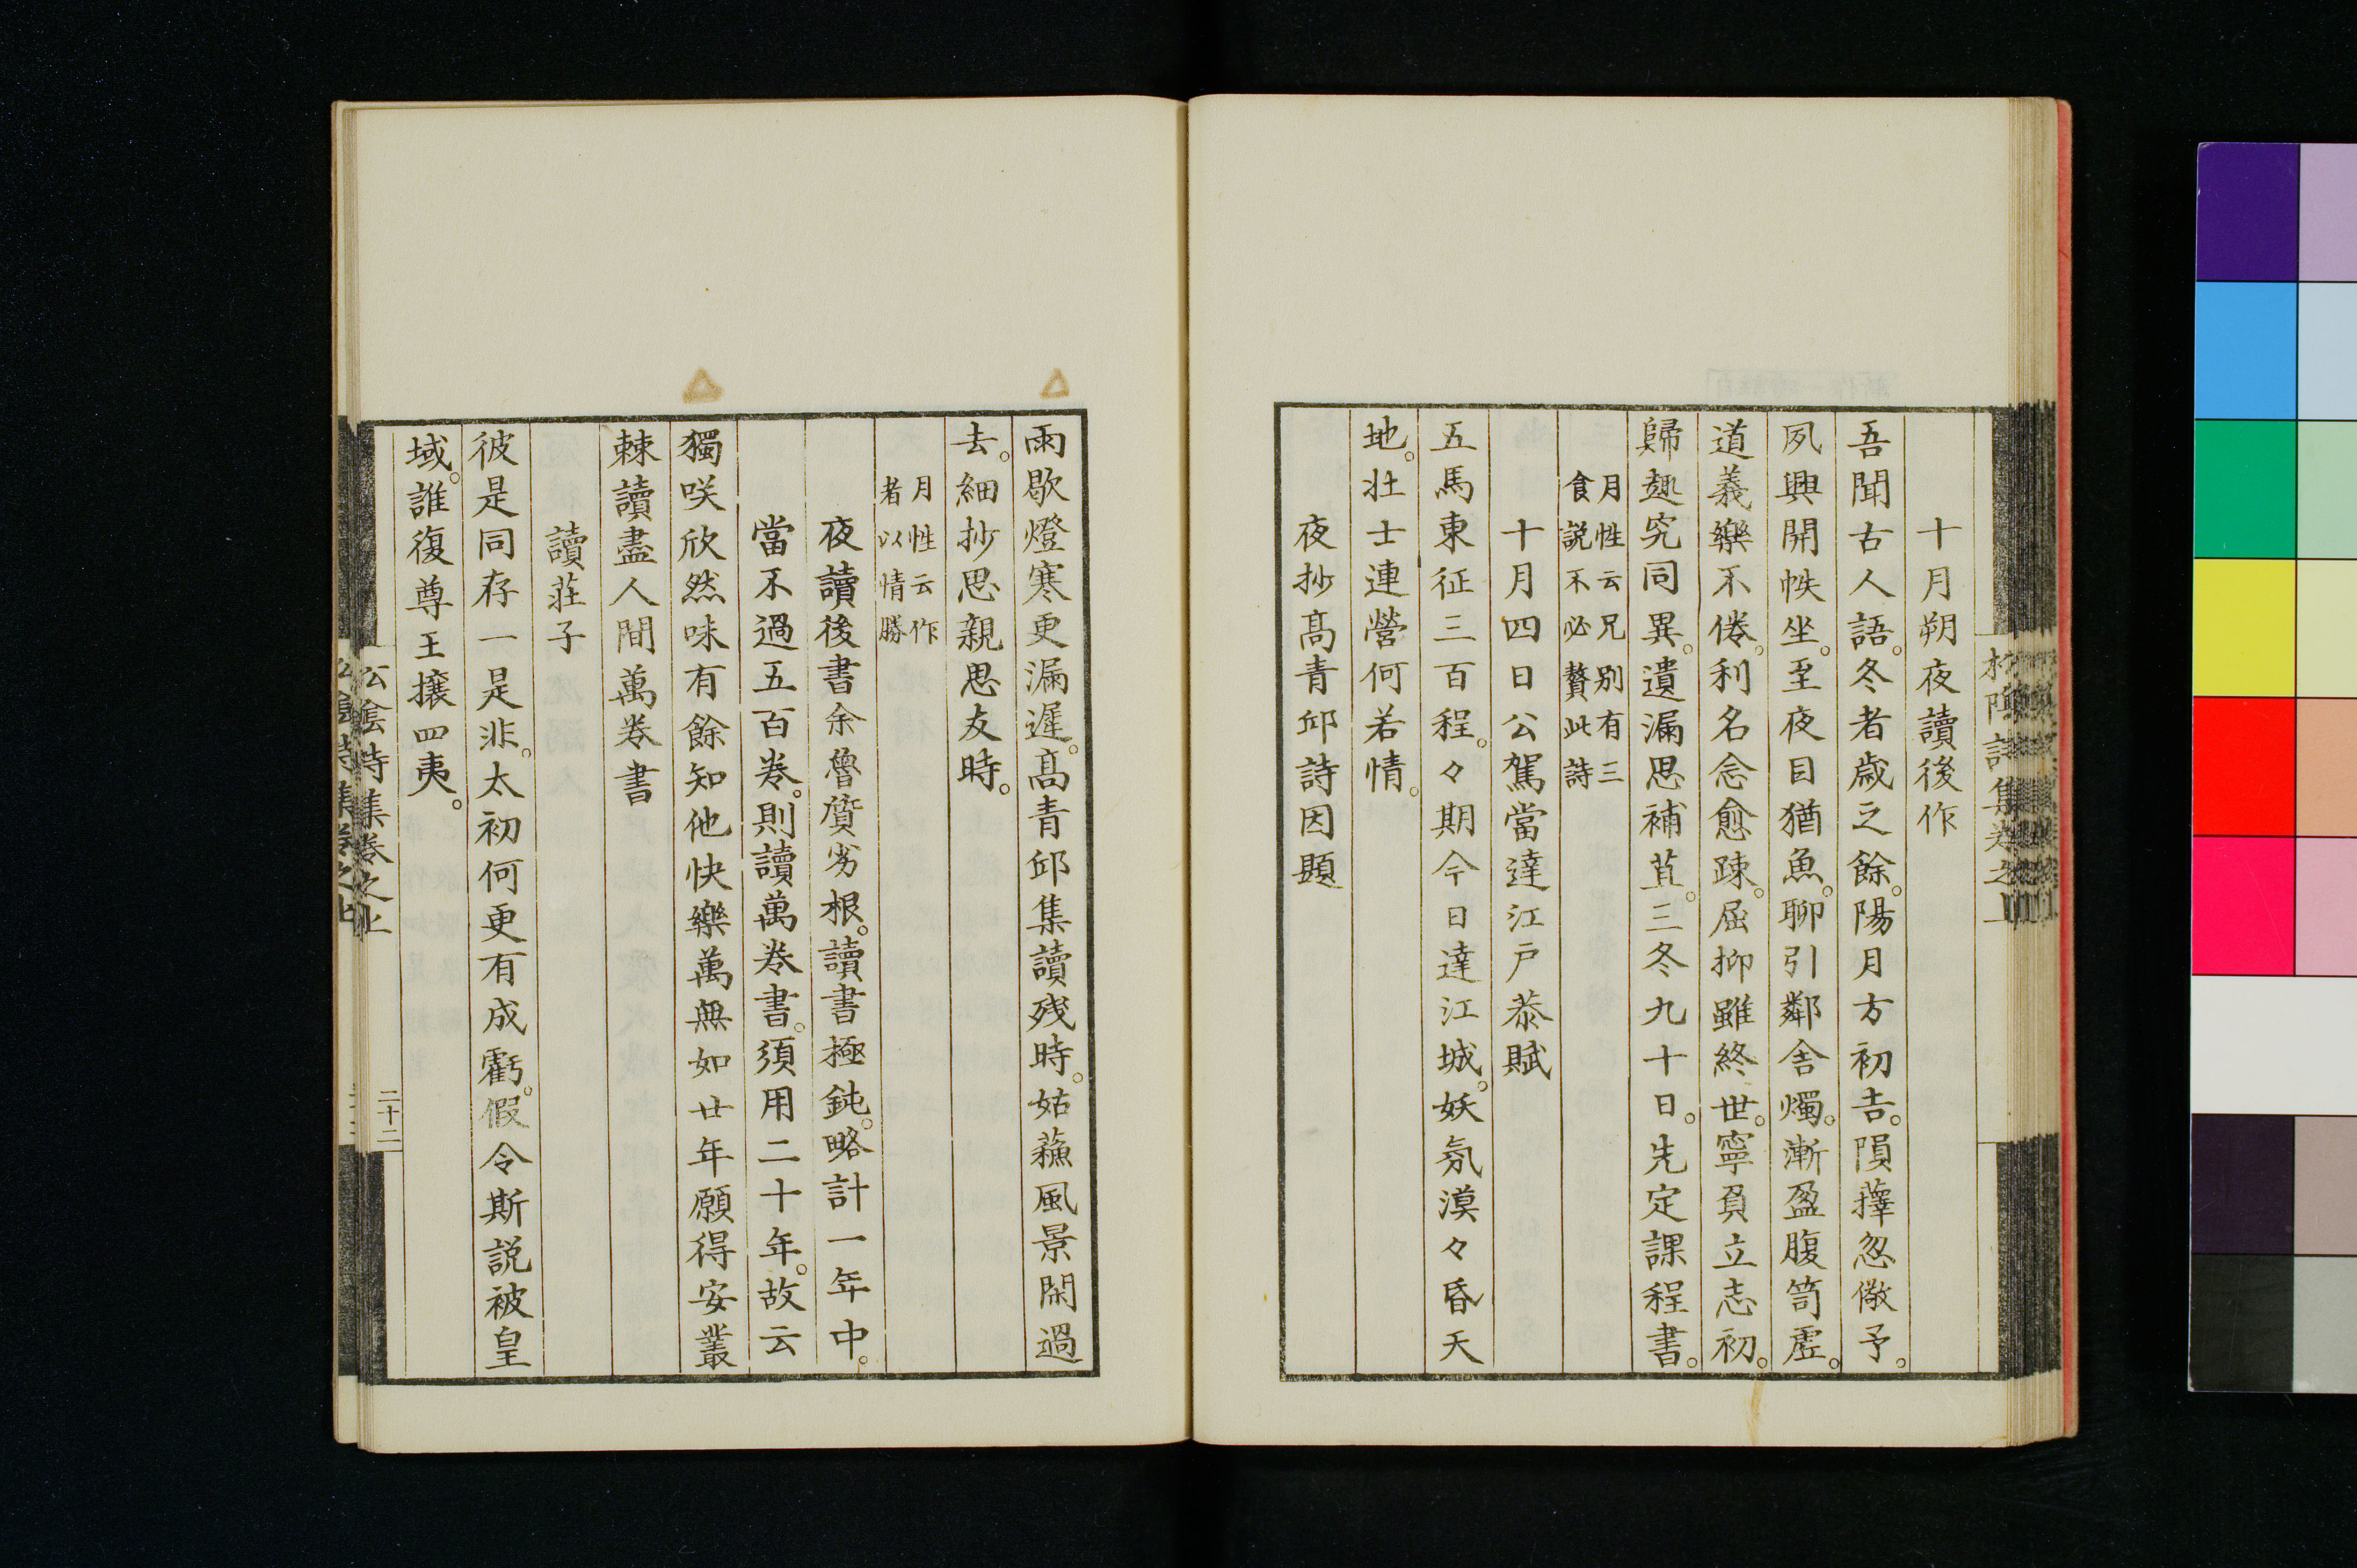 十月朔夜讀後作
吾聞古人語。冬者歲之餘。陽月方初吉。隕蘀忽儆予。
夙興開帙坐。至夜目猶魚。聊引鄰舍燭。漸盈腹笥虛。
道義樂不倦。利名念愈疎。屈抑雖終世。寧負立志初。
歸趣究同異。遺漏思補苴。三冬九十日。先定課程書。
月性云兄別有三
食説不必贅此詩
十月四日公駕當達江戸恭賦
五馬東征三百程。々期今日達江城。妖氛漠々昏天
地。壯士連營何若情。
夜抄髙青邱詩因題
雨歇燈寒更漏遲。髙青邱集讀殘時。姑蘓風景閑過
去。細抄思親思友時。
月性云作
者以情勝
夜讀後書余魯質劣根。讀書極鈍。略計一年中。
當不過五百卷。則讀萬卷書。須用二十年。故云
獨咲欣然味有餘知他快樂萬無如廿年願得安叢
棘讀盡人間萬卷書
讀莊子
彼是同存一是非。太初何更有成虧。假令斯説被皇
域。誰復尊王攘四夷。
二十二